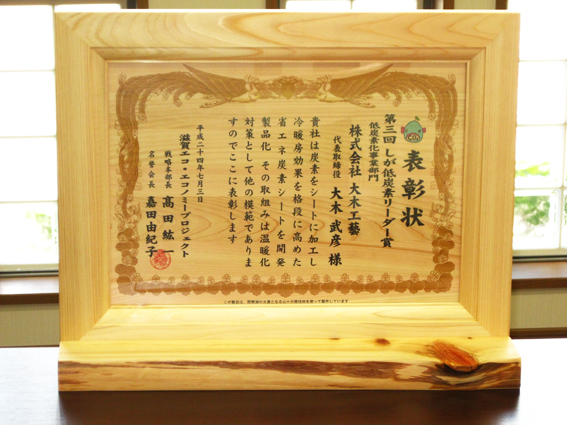 表彰状
第三回 しが低炭素リーダー賞
低炭素化事業部門
株式会社 大木工藝
代表取締役 大木 武彦 様
貴社は炭素をシートに加工し
冷暖房効果を格段に高めた
省エネ炭素シートを開発
製品化 その取組みは温暖化
対策として他の模範でありま
すのでここに表彰します
平成二十四年七月三日
滋賀エコ・エコノミープロジェクト
戦略本部長 髙田 紘一
名誉会長 嘉田由紀子